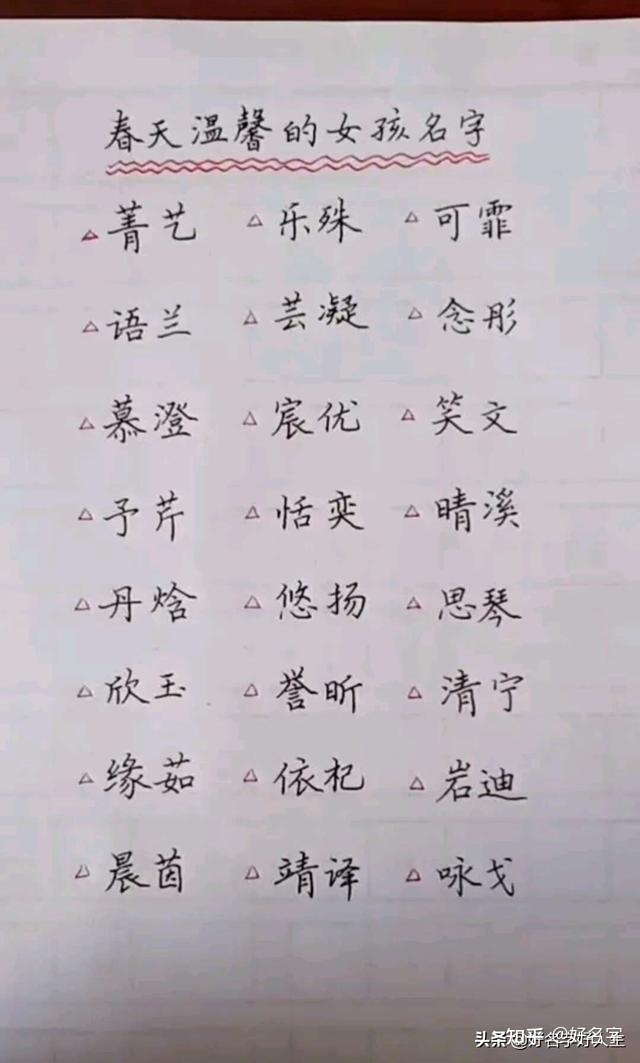 春天温馨的女孩名字
△菁艺 △乐殊 △可霏
△语兰 △芸凝 △念彤
△慕澄 △宸优 △笑文
△予芹 △恬奕 △晴溪
△丹焓 △悠扬 △思琴
△欣玉 △誉昕 △清宁
△缘茹 △依杞 △岩迪
△晨茵 △靖译 △咏戈
知乎 @好名字
头条 @好名字好人生